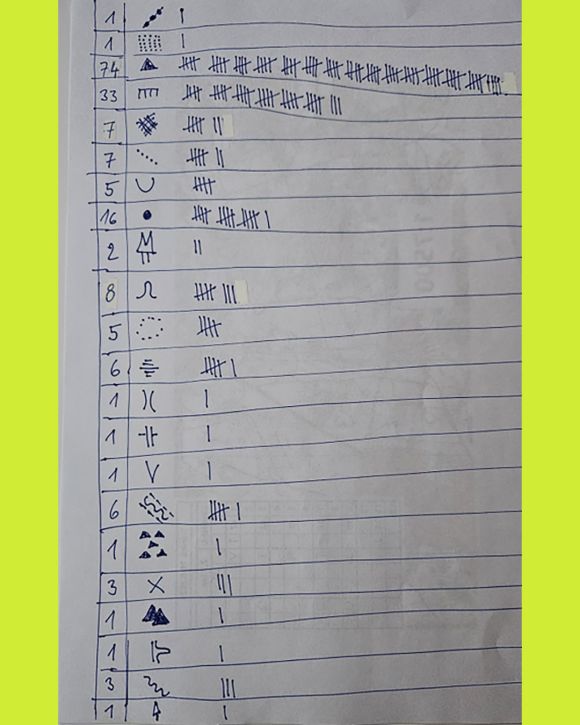 1
1
74
33
7
7
5
16
2
8
5
6
1
1
1
6
1
3
1
1
3
1